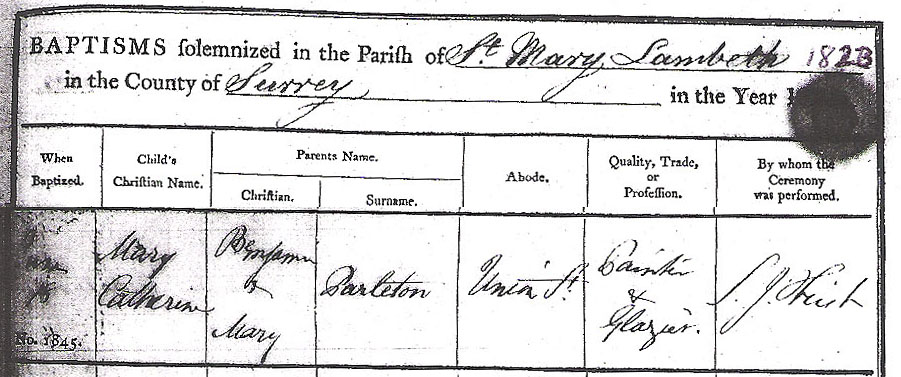 BAPTISMS solemnized in the Parish of St Mary Lambeth 1823
in the County of Surrey in the Year
When Baptized.
Child's Christian Name.
Parents Name.
Christian.
Surname.
Abode.
Quality, Trade, or Profession.
By whom the Ceremony was performed.
Mary
Catherine
Benjamin
&
Mary
Parleton
Union St
Painter
&
Glazier.
No. 1845.